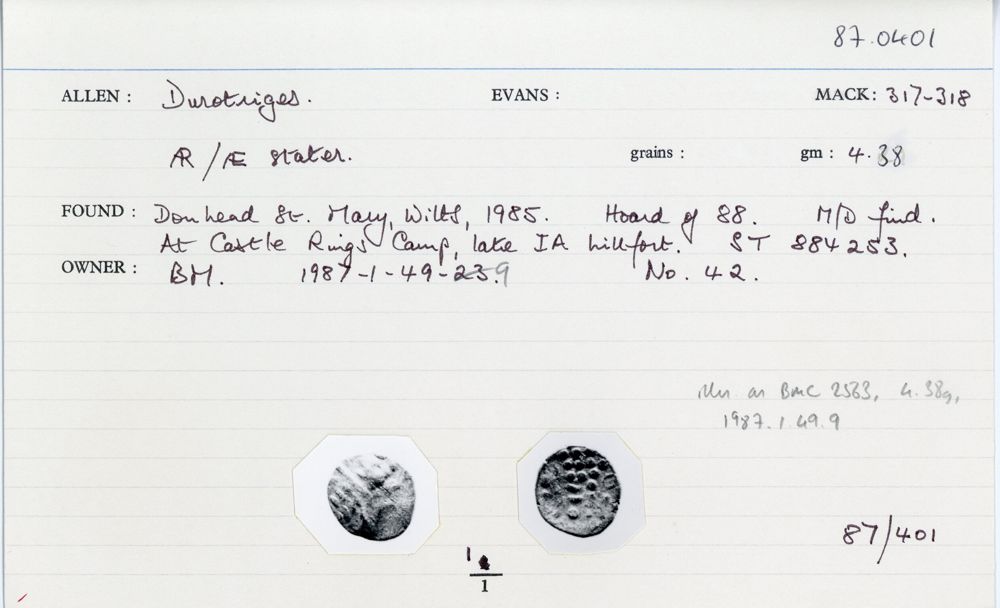 87.0401
ALLEN : Durotriges. EVANS : MACK: 317-318
AR / Æ stater. grains : gm : 4.38
FOUND : Donhead St. Mary, Wilts, 1985. Hoard of 88. M/D find.
At Castle Rings Camp, late IA hillfort. ST 884253.
OWNER : BM. 1987-1-49-9 No. 42.
illus. as BMC 2563, 4.38g,
1987.1.49.9
87/401
1
1